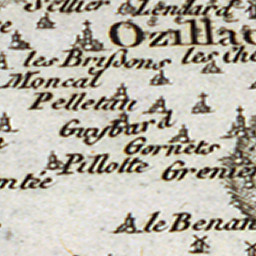 Sellier Lendard
Ozillac
les Brissons les Che
Moncal
Pelletan
Guybard
Gornets
Pillotte Grenier
ontée
le Benan